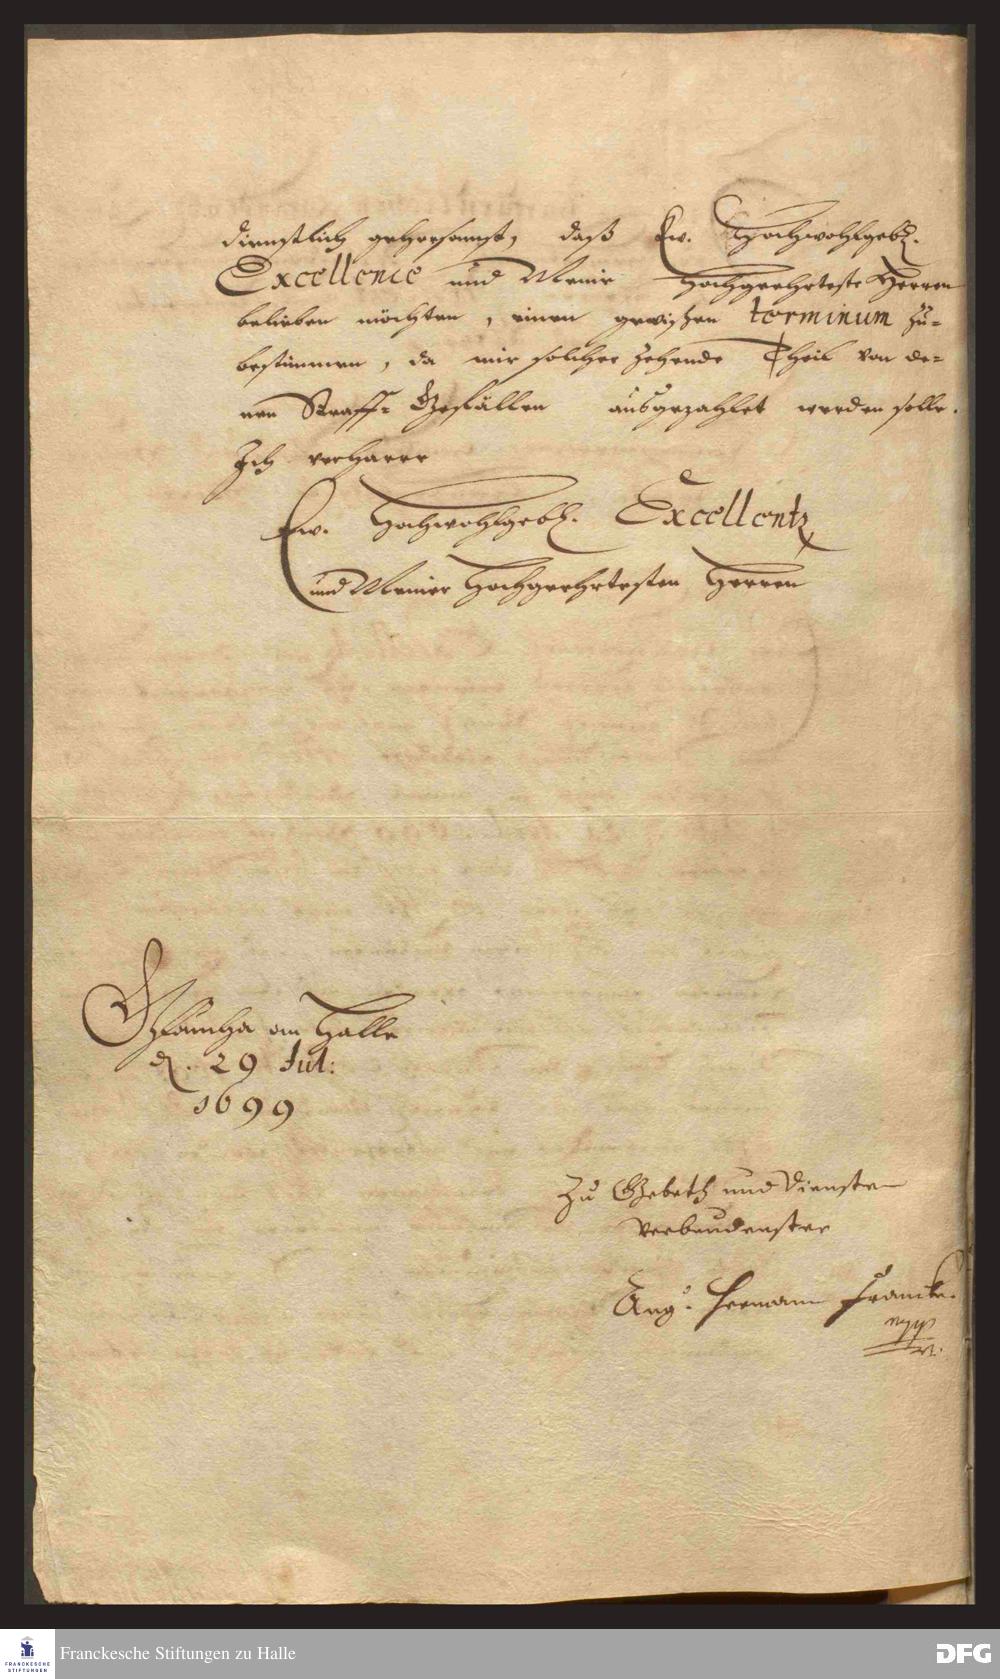 dienstlich gehorsamst, daß Ew. Hochwohlgeb.
Excellence und Meine Hochgeehrteste Herren
belieben möchten, einen gewißen terminum zu-
bestimmen, da mir solcher Zehende Theil von de-
nen Straff- Gefällen ausgezahlet werden solle.
Ich verharre
Ew. Hochwohlgeb. Excellentz
und Meiner Hochgeehrtesten Herren
Glaucha an Halle
d. 29 Jul:
1699
Zu Gebeth und Diensten
verbundenster
Aug. Hermann Francke.
mpp
FRANCKESCHE
STIFTUNGEN
Franckesche Stiftungen zu Halle
DFG